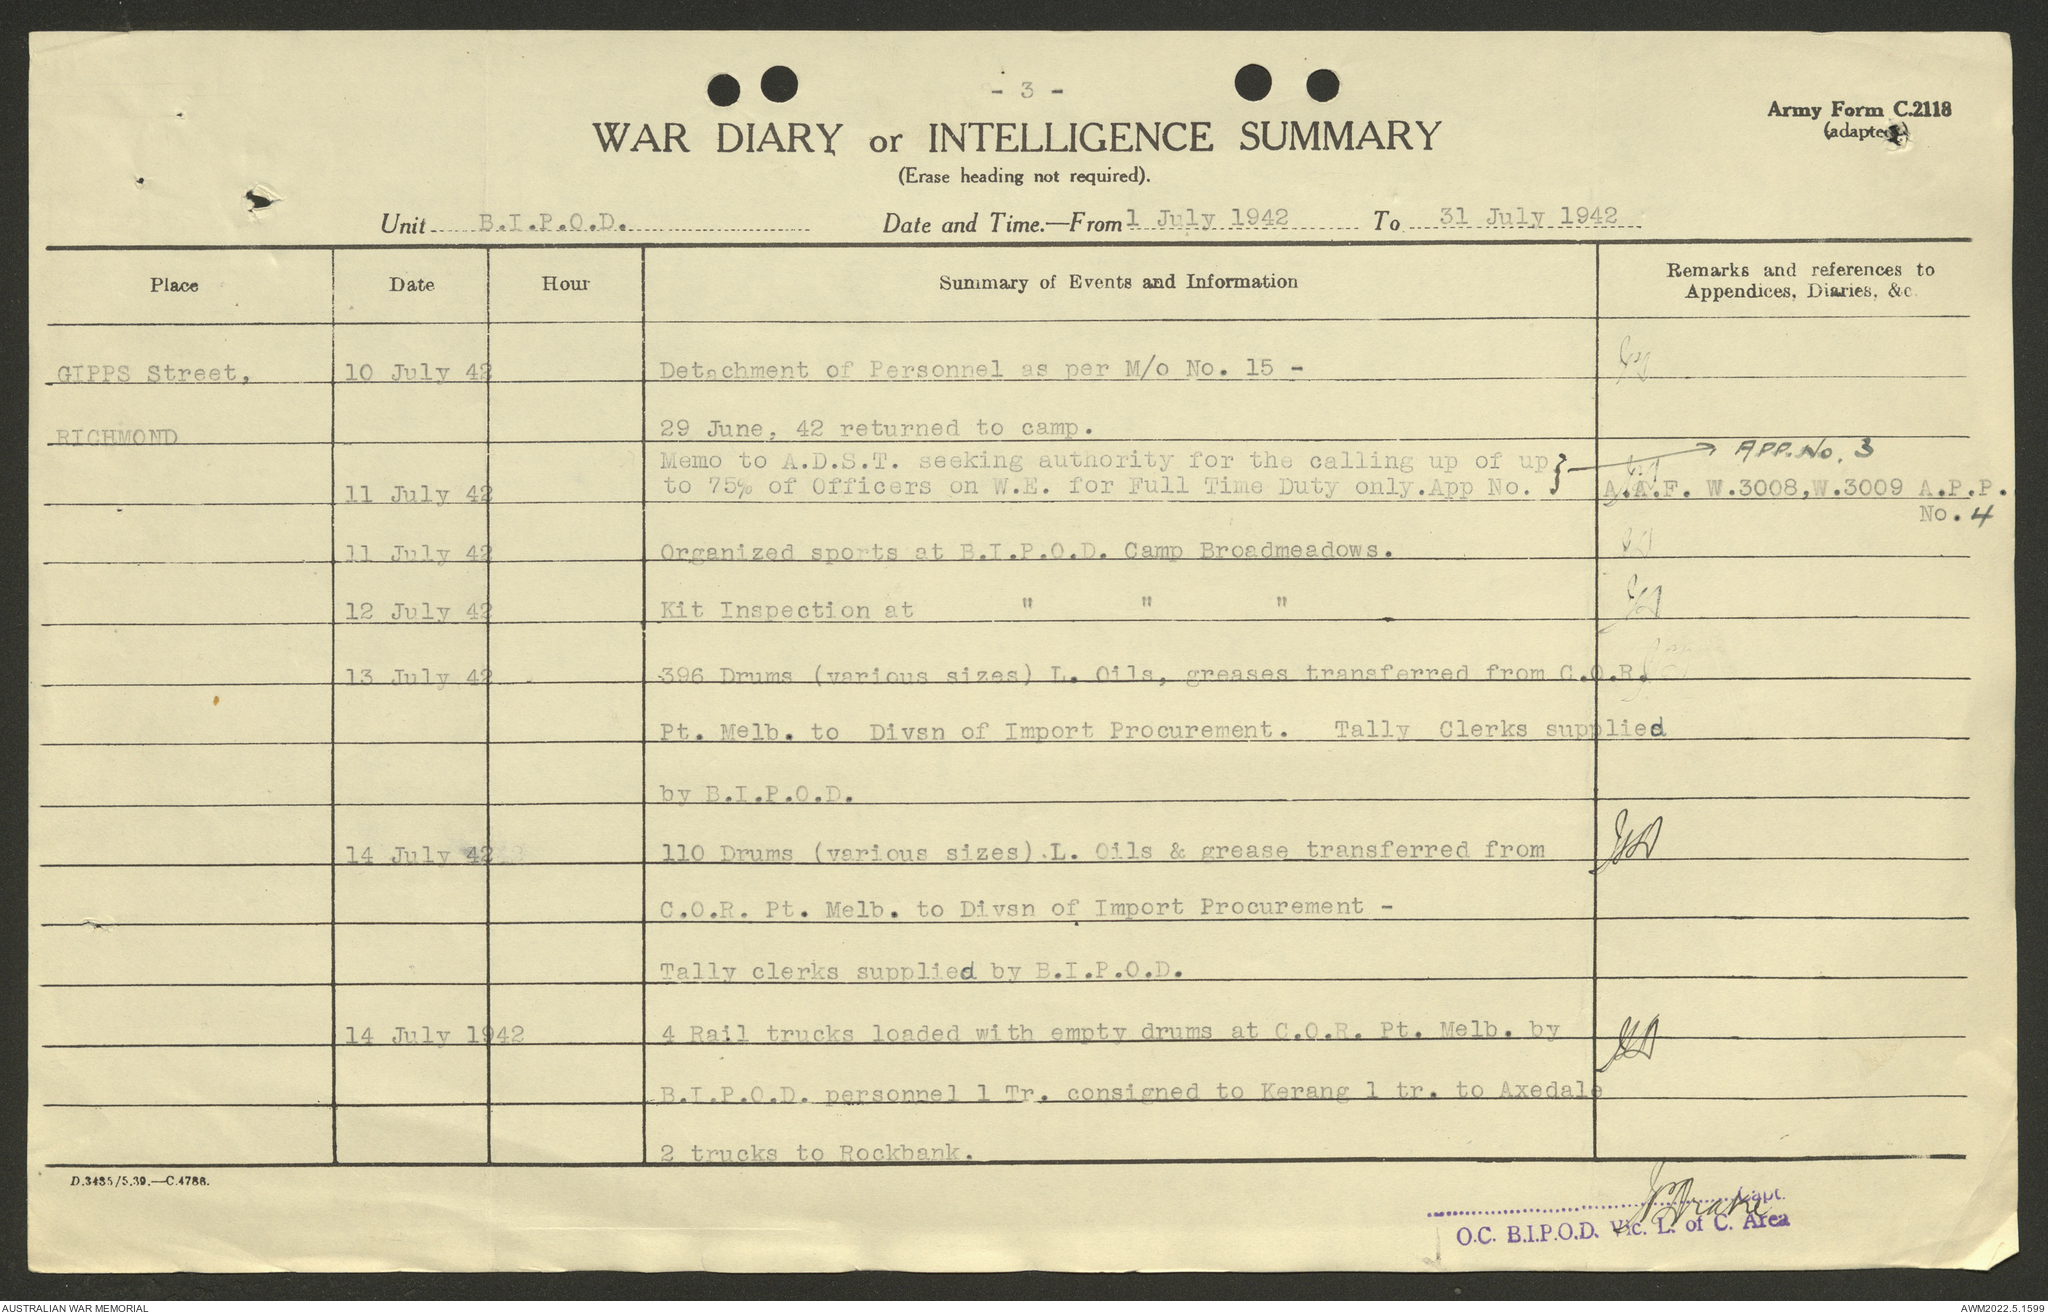 - 3 -
Army Form C.2118
(adapted)
WAR DIARY or INTELLIGENCE SUMMARY
(Erase heading not required).
Unit B.I.P.O.D. Date and Time.—From 1 July 1942 To 31 July 1942
Place Date Hour Summary of Events and Information Remarks and references to
Appendices, Diaries, &c.
GIPPS Street, 10 July 42 Detachment of Personnel as per M/o No. 15 -
RICHMOND 29 June, 42 returned to camp.
Memo to A.D.S.T. seeking authority for the calling up of up } APP. No. 3
11 July 42 to 75% of Officers on W.E. for Full Time Duty only.App No. A.A.F. W.3008,W.3009 A.P.P.
No. 4
11 July 42 Organized sports at B.I.P.O.D. Camp Broadmeadows.
12 July 42 Kit Inspection at " " "
13 July 42 396 Drums (various sizes) L. Oils, greases transferred from C.O.R.
Pt. Melb. to Divsn of Import Procurement. Tally Clerks supplied
by B.I.P.O.D.
14 July 42 110 Drums (various sizes) L. Oils & grease transferred from
C.O.R. Pt. Melb. to Divsn of Import Procurement -
Tally clerks supplied by B.I.P.O.D.
14 July 1942 4 Rail trucks loaded with empty drums at C.O.R. Pt. Melb. by
B.I.P.O.D. personnel 1 Tr. consigned to Kerang 1 tr. to Axedale
2 trucks to Rockbank.
D.3435/5.39.—C.4788.
Drake Capt.
O.C. B.I.P.O.D. Vic. L. of C. Area
AUSTRALIAN WAR MEMORIAL AWM2022.5.1599